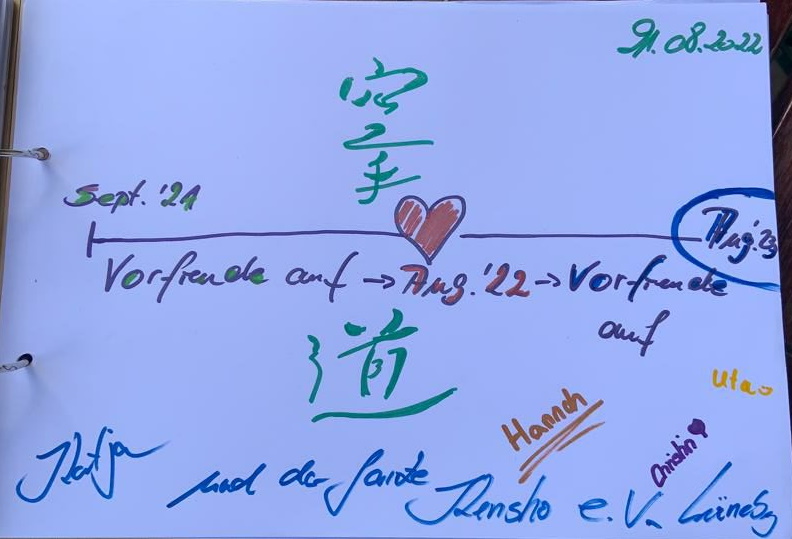 21.08.2022
空
手
Sept. '21
Aug. '23
Vorfreude auf → Aug. '22 → Vorfreude
auf
道
Uta
Hannah
Christin
Katja
und der ganze Kensho e.V.